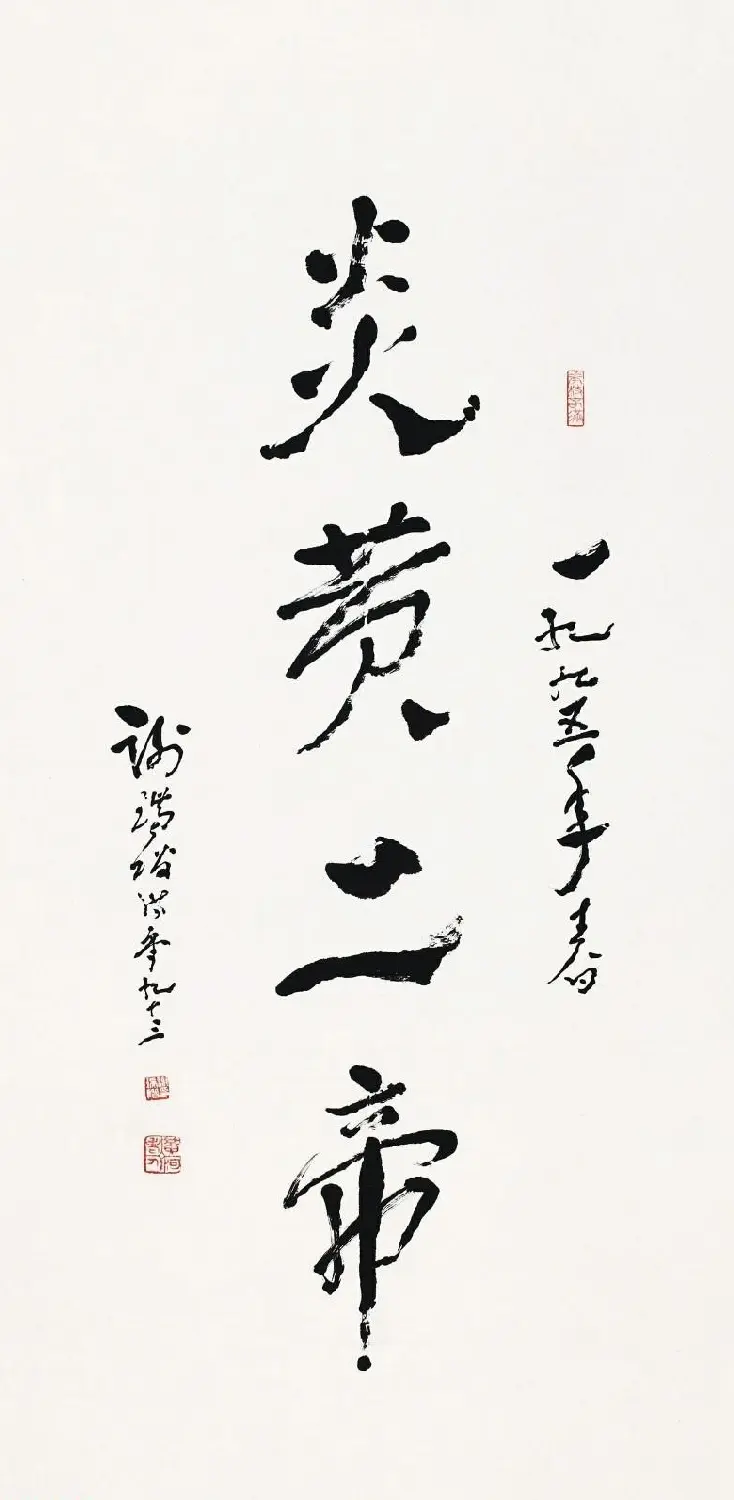 一九九五年春
炎黄二帝
谢瑞堦时年九十三